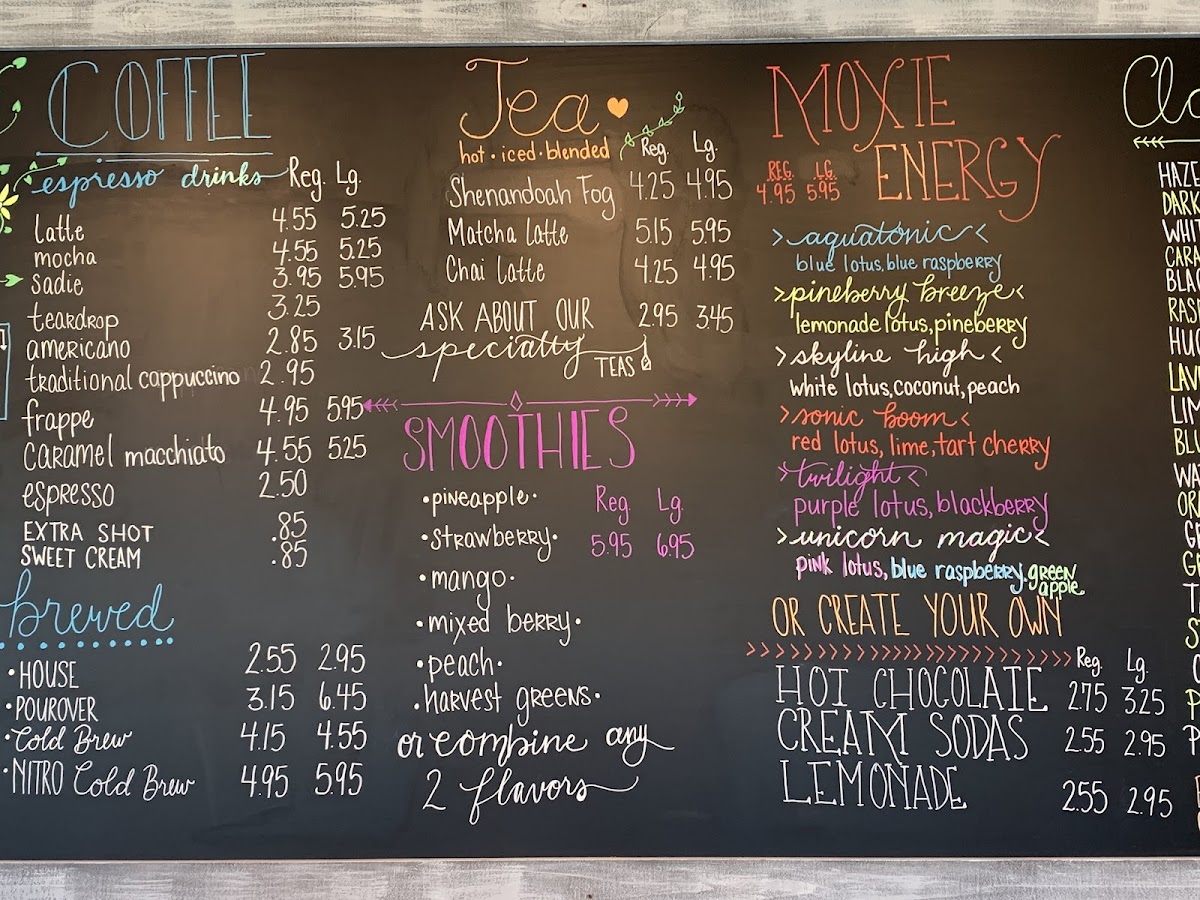 COFFEE
espresso drinks Reg. Lg.
latte 4.55 5.25
mocha 4.55 5.25
sadie 3.95 5.95
teardrop 3.25
americano 2.85 3.15
traditional cappuccino 2.95
frappe 4.95 5.95
caramel macchiato 4.55 5.25
espresso 2.50
EXTRA SHOT .85
SWEET CREAM .85
brewed
• HOUSE 2.55 2.95
• POUROVER 3.15 6.45
• Cold Brew 4.15 4.55
• NITRO Cold Brew 4.95 5.95
Tea
hot • iced • blended Reg. Lg.
Shenandoah Fog 4.25 4.95
Matcha Latte 5.15 5.95
Chai Latte 4.25 4.95
ASK ABOUT OUR 2.95 3.45
specialty TEAS
SMOOTHIES
• pineapple • Reg. Lg.
• strawberry • 5.95 6.95
• mango •
• mixed berry •
• peach •
• harvest greens •
or combine any
2 flavors
MOXIE
ENERGY
REG. LG.
4.95 5.95
> aquatonic <
blue lotus, blue raspberry
> pineberry breeze <
lemonade lotus, pineberry
> skyline high <
white lotus, coconut, peach
> sonic boom <
red lotus, lime, tart cherry
> twilight <
purple lotus, blackberry
> unicorn magic <
pink lotus, blue raspberry, green
apple
OR CREATE YOUR OWN
Reg. Lg.
HOT CHOCOLATE 2.75 3.25
CREAM SODAS 2.55 2.95
LEMONADE 2.55 2.95
Cla
HAZE
DARK
WHIT
CARA
BLAC
RASP
HUC
LAV
LIM
BLU
WA